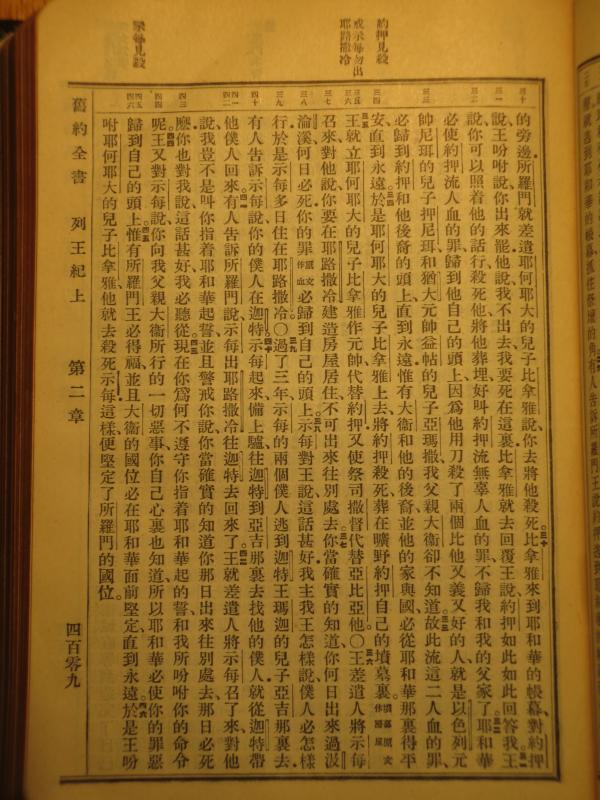 約押見殺
戒示每勿出
耶路撒冷
示每見殺
的旁邊、所羅門就差遣耶何耶大的兒子比拿雅說、你去將他殺死。比拿雅來到耶和華的帳幕、對約押
說、王吩咐說、你出來罷、他說、我不出去、我要死在這裏、比拿雅就去回覆王、說、約押如此如此回答我。王
說、你可以照着他的話行、殺死他、將他葬埋、好叫約押流無辜人血的罪、不歸我和我的父家了。耶和華
必使約押流人血的罪、歸到他自己的頭上、因爲他用刀殺了兩個比他又義又好的人、就是以色列元
帥尼珥的兒子押尼珥、和猶大元帥益帖的兒子亞瑪撒、我父親大衞卻不知道。故此流這二人血的罪、
必歸到約押和他後裔的頭上、直到永遠、惟有大衞和他的後裔、並他的家與國、必從耶和華那裏得平
安、直到永遠。於是耶何耶大的兒子比拿雅上去、將約押殺死、葬在曠野約押自己的墳墓裏。墳墓原文作房屋
王就立耶何耶大的兒子比拿雅作元帥、代替約押、又使祭司撒督代替亞比亞他。○王差遣人將示每
召來、對他說、你要在耶路撒冷建造房屋居住、不可出來往別處去、你當確實的知道、你何日出來過汲
淪溪、何日必死、你的罪原文作血必歸到自己的頭上。示每對王說、這話甚好、我主我王怎樣說、僕人必怎樣
行、於是示每多日住在耶路撒冷。○過了三年、示每的兩個僕人逃到迦特王瑪迦的兒子亞吉那裏去、
有人告訴示每說、你的僕人在迦特。示每起來、備上驢、往迦特到亞吉那裏去找他的僕人、就從迦特帶
他僕人回來。有人告訴所羅門說、示每出耶路撒冷往迦特去、回來了。王就差遣人將示每召了來、對他
說、我豈不是叫你指着耶和華起誓、並且警戒你說、你當確實的知道、你那日出來往別處去、那日必死
麽、你也對我說、這話甚好、我必聽從。現在你爲何不遵守你指着耶和華起的誓、和我所吩咐你的命令
呢。王又對示每說、你向我父親大衞所行的一切惡事、你自己心裏也知道、所以耶和華必使你的罪惡
歸到自己的頭上。惟有所羅門王必得福、並且大衞的國位必在耶和華面前堅定、直到永遠。於是王吩
咐耶何耶大的兒子比拿雅、他就去殺死示每、這樣、便堅定了所羅門的國位。
舊約全書 列王紀上 第二章 四百零九